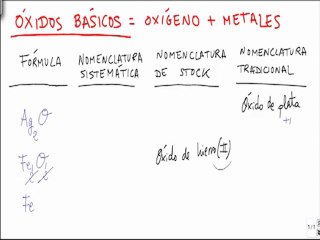 ÓXIDOS BÁSICOS = OXÍGENO + METALES
FÓRMULA NOMENCLATURA SISTEMÁTICA NOMENCLATURA DE STOCK NOMENCLATURA TRADICIONAL
Óxido de plata
+1
Ag2O
Fe2O2 Óxido de hierro (II)
Fe
1/1